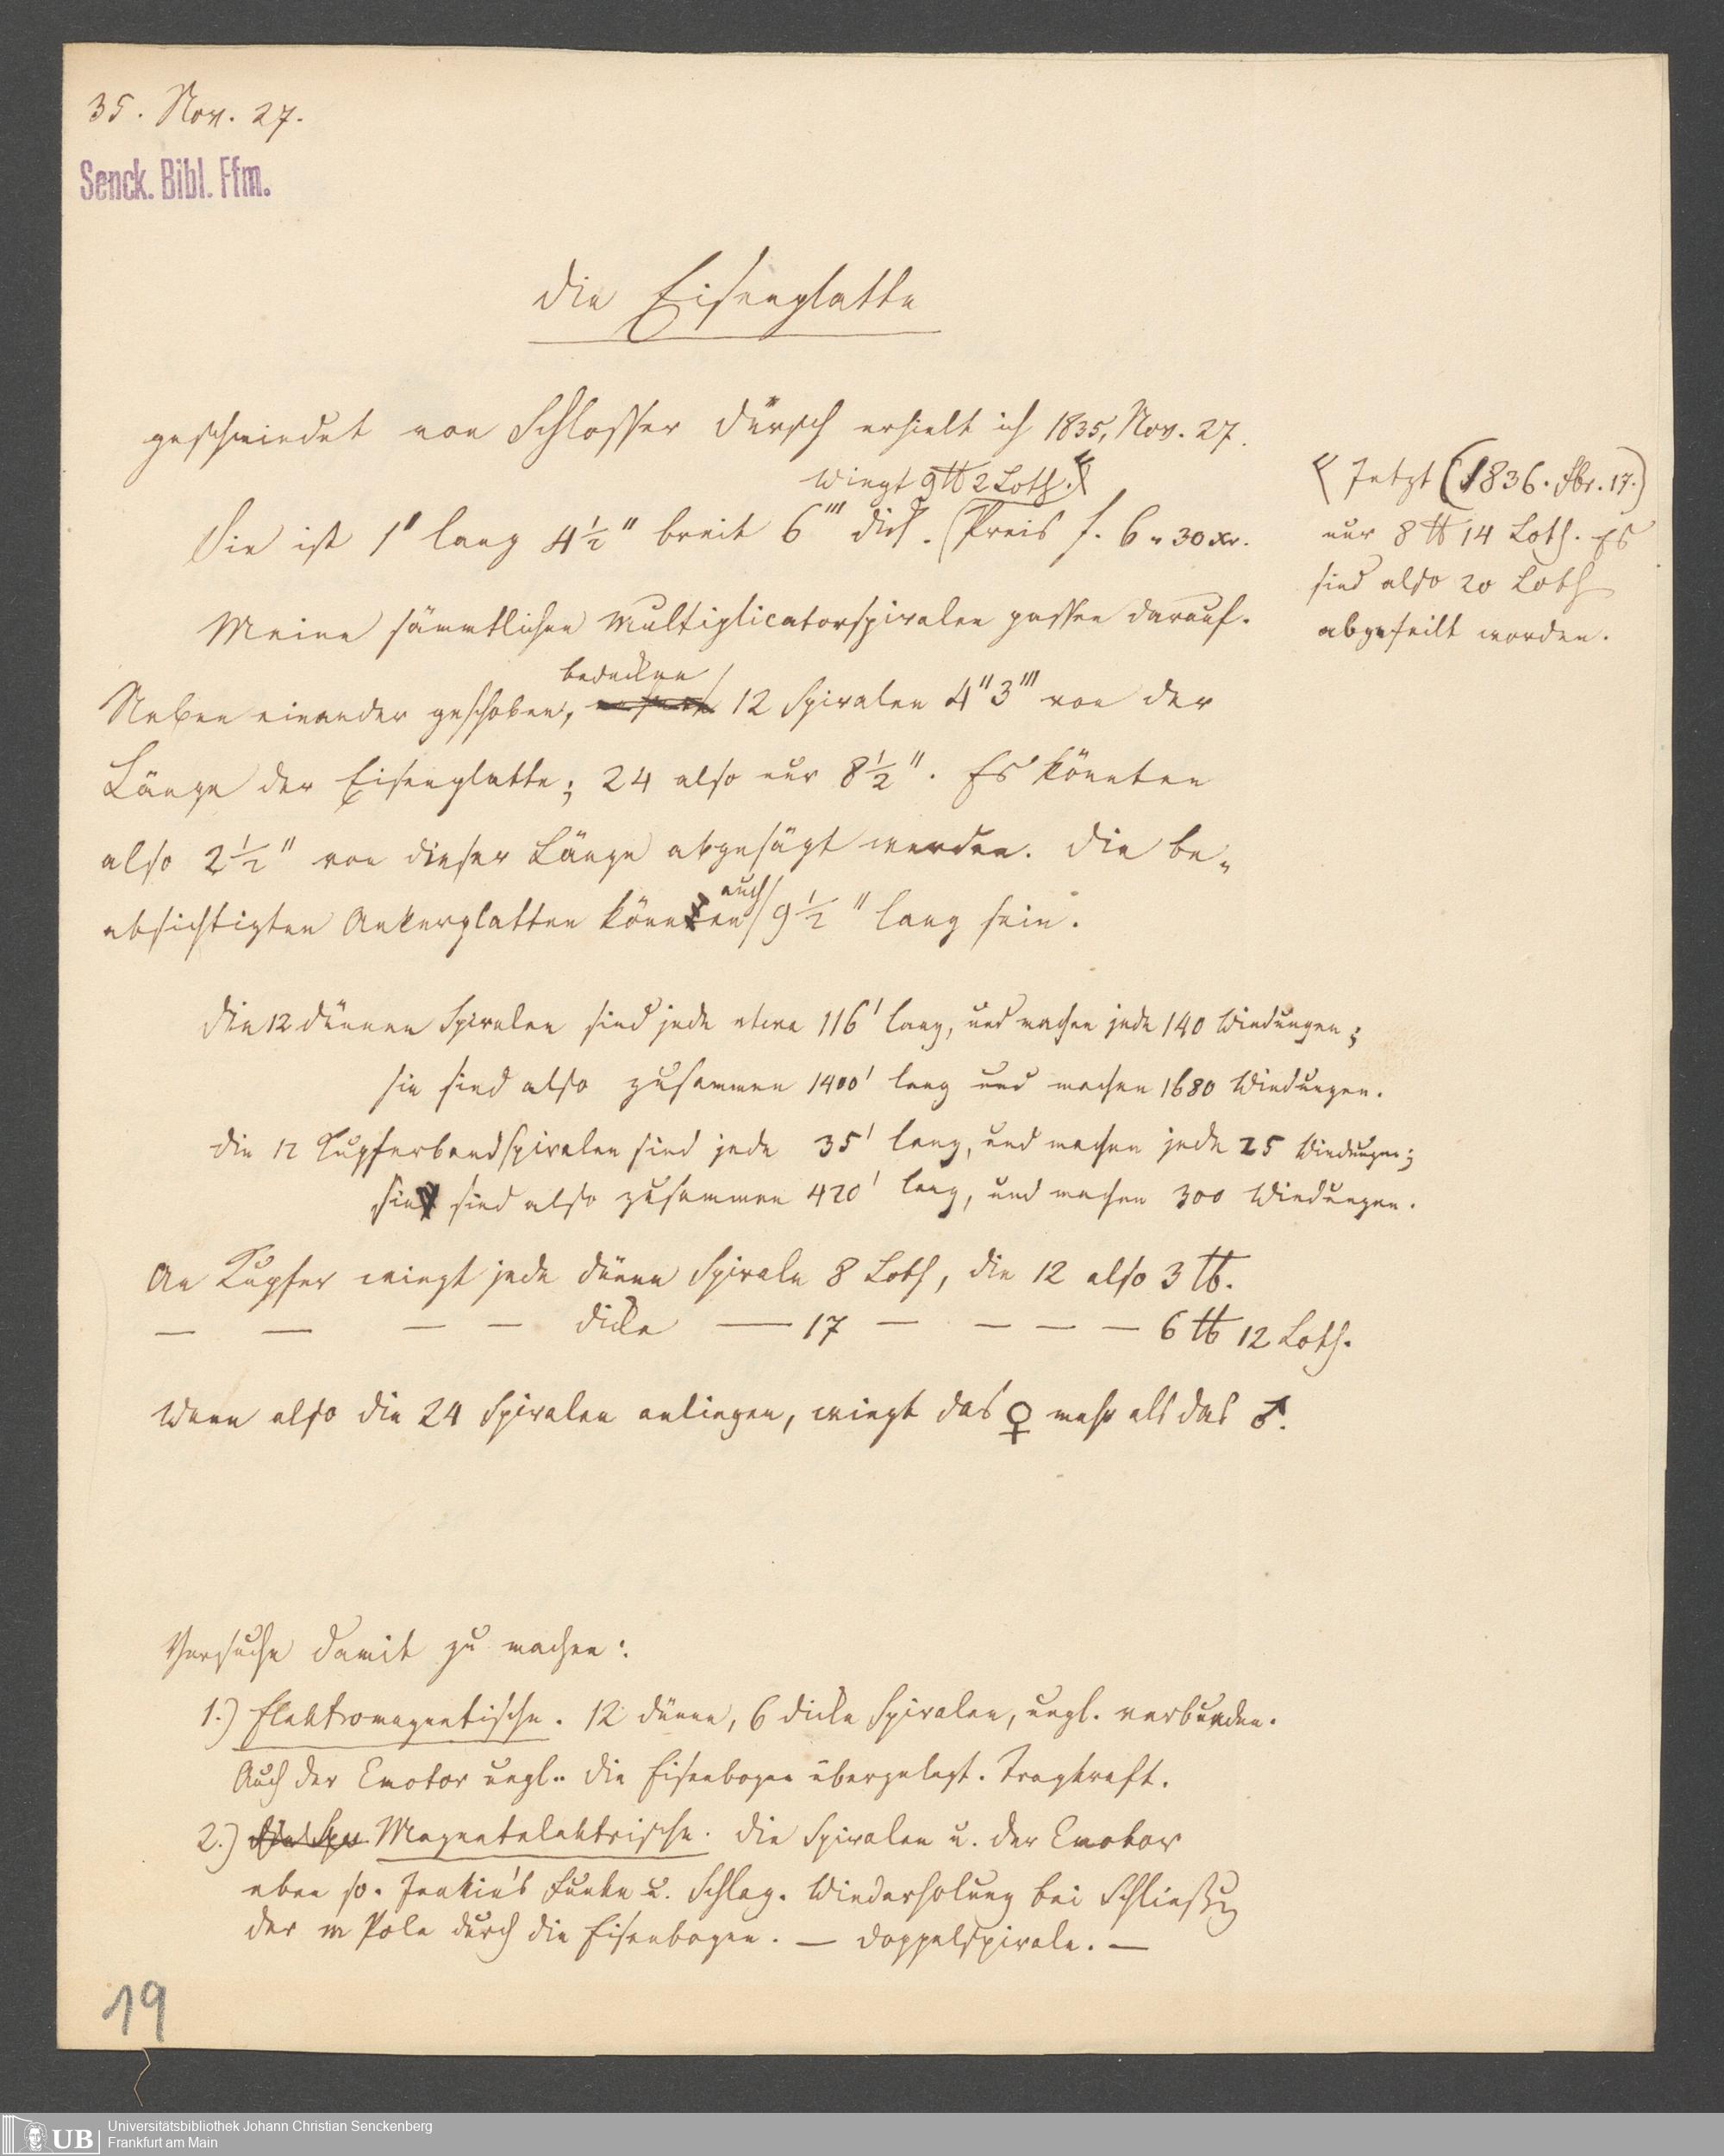 35. Nov. 27.
Senck. Bibl. Ffm.
Die Eisenplatte
geschmiedet von Schlosser Dürsch erhielt ich 1835, Nov. 27.
wiegt 9 ℔ 2 Loth.
Sie ist 1' lang 4½'' breit 6''' dick. (Preis f. 6 " 30 xr.
Jetzt (1836. Fbr. 17.)
nur 8 ℔ 14 Loth. Es
sind also 20 Loth
abgefeilt worden.
Meine sämmtlichen Multiplicatorspiralen passen darauf.
bedecken
Neben einander geschoben, 12 Spiralen 4'' 3''' von der
Länge der Eisenplatte; 24 also nur 8½''. Es könnten
also 2½'' von dieser Länge abgesägt werden. Die be-
auch
absichtigten Ankerplatten können 9½'' lang sein.
Die 12 dünnen Spiralen sind jede etwa 116' lang, und machen jede 140 Windungen;
sie sind also zusammen 1400' lang und machen 1680 Windungen.
Die 12 Kupferbandspiralen sind jede 35' lang, und machen jede 25 Windungen;
sie sind also zusammen 420' lang, und machen 300 Windungen.
An Kupfer wiegt jede dünne Spirale 8 Loth, die 12 also 3 ℔.
— — — — dicke — 17 — — — — 6 ℔ 12 Loth.
Wenn also die 24 Spiralen anliegen, wiegt das ♀ mehr als das ♂.
Versuche damit zu machen:
1.) Elektromagnetische. 12 dünne, 6 dicke Spiralen, ungl. verbunden.
Auch der Emotor ungl. die Eisenbogen übergelegt. Tragkraft.
2.) Magnetelektrische. Die Spiralen u. der Emotor
eben so. Jenkin's Funke u. Schlag. Wiederholung bei Schließung
der m Pole durch die Eisenbogen. — Doppelspirale. —
19
UB Universitätsbibliothek Johann Christian Senckenberg
Frankfurt am Main